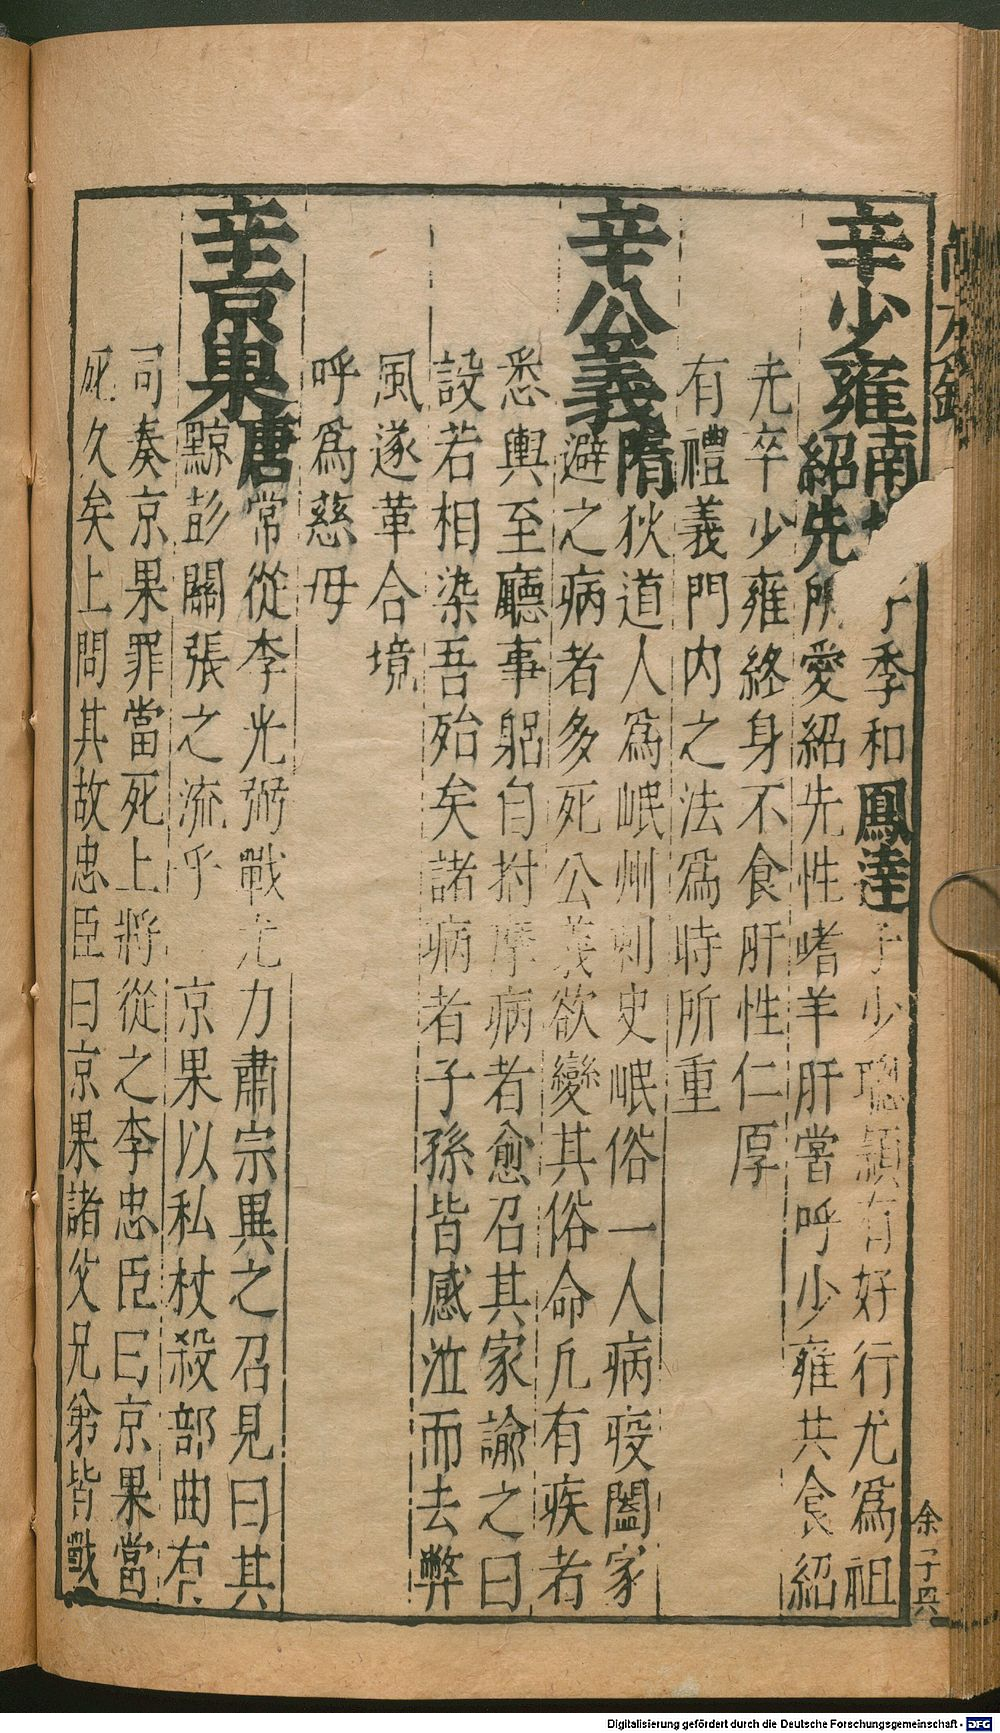 辛少雍南
子季和鳳逹子少聰頴有好行尤爲祖
紹先所愛紹先性嗜羊肝嘗呼少雍共食紹
先卒少雍終身不食肝性仁厚
有禮義門內之法爲時所重
辛公義隋狄道人爲岷州刺史岷俗一人病疫闔家
避之病者多死公義欲變其俗命凡有疾者
悉輿至廳事躬自拊摩病者愈召其家諭之曰
設若相染吾殆矣諸病者子孫皆感泣而去弊
風遂革合境
呼爲慈母
辛京杲唐常從李光弼戰尤力肅宗異之召見曰其
黥彭關張之流乎　京果以私杖殺部曲有
司奏京果罪當死上將從之李忠臣曰京果當
死久矣上問其故忠臣曰京果諸父兄弟皆戰
余
Digitalisierung gefördert durch die Deutsche Forschungsgemeinschaft - DFG